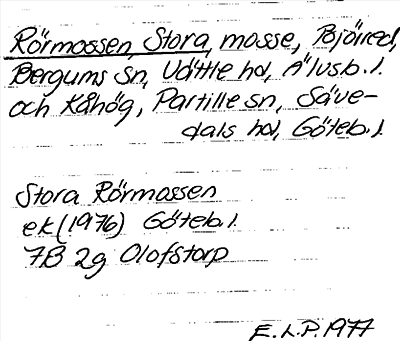 Rörmossen, Stora, mosse, Björred,
Bergums sn, Vättle hd, Älvsb. l.
och Kåhög, Partille sn, Säve-
dals hd, Göteb. l.
Stora Rörmossen
ek (1976) Göteb. l.
7B 2g Olofstorp
E. L. P. 1977